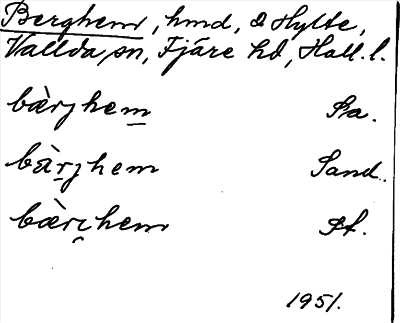 Berghem, hmd, å Hylte,
Vallda sn, Fjäre hd, Hall. l.
bæ̀rjhem̲ Pa.
bàr̲jhem Sand.
bæ̀rçhem Pf.
1951.